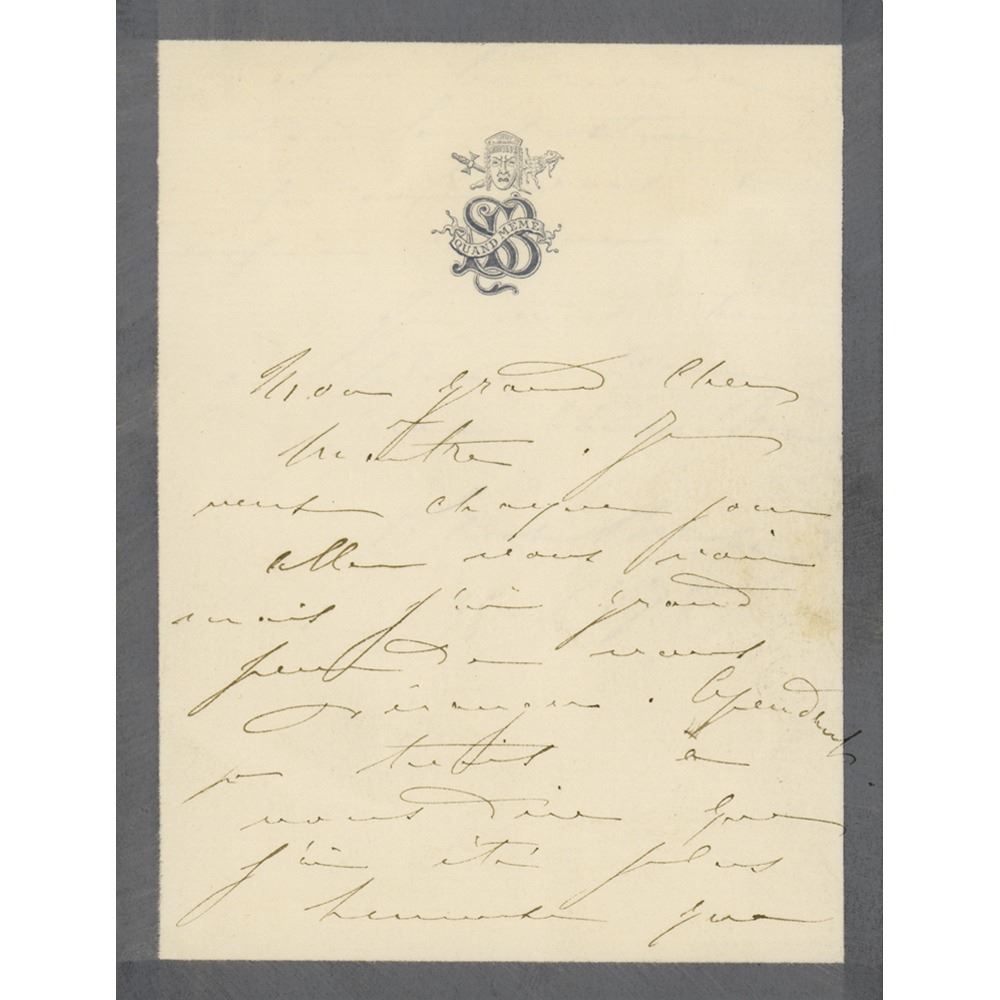 QUAND MÊME
SB
Mon grand Cher
Maître. Je
veux chaque jour
aller vous voir
mais j'ai grand
peur de vous
déranger. Cependant
je tiens à
vous dire que
j'ai été plus
heureuse que